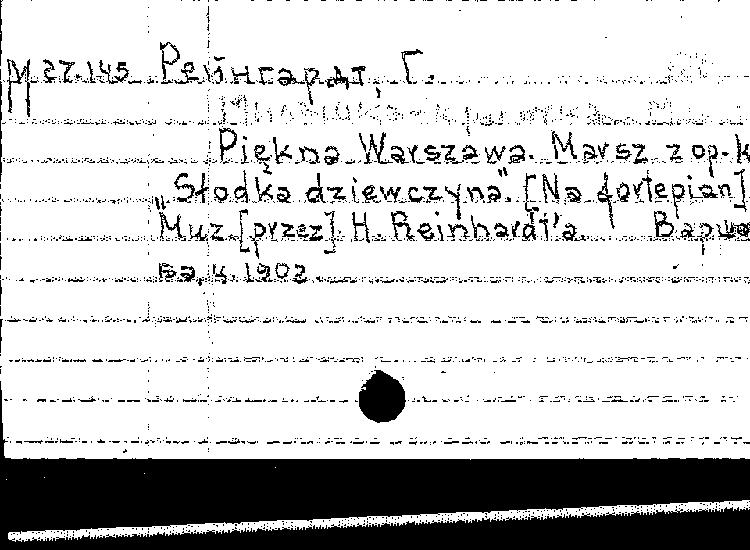 М 27.145 Рейнгардт, Г.
Piękna Warszawa. Marsz z op. k
„Słodka dziewczyna". [Na fortepian]
Muz [przez] H. Reinhardt'a. Варша
ва, ц. 1902